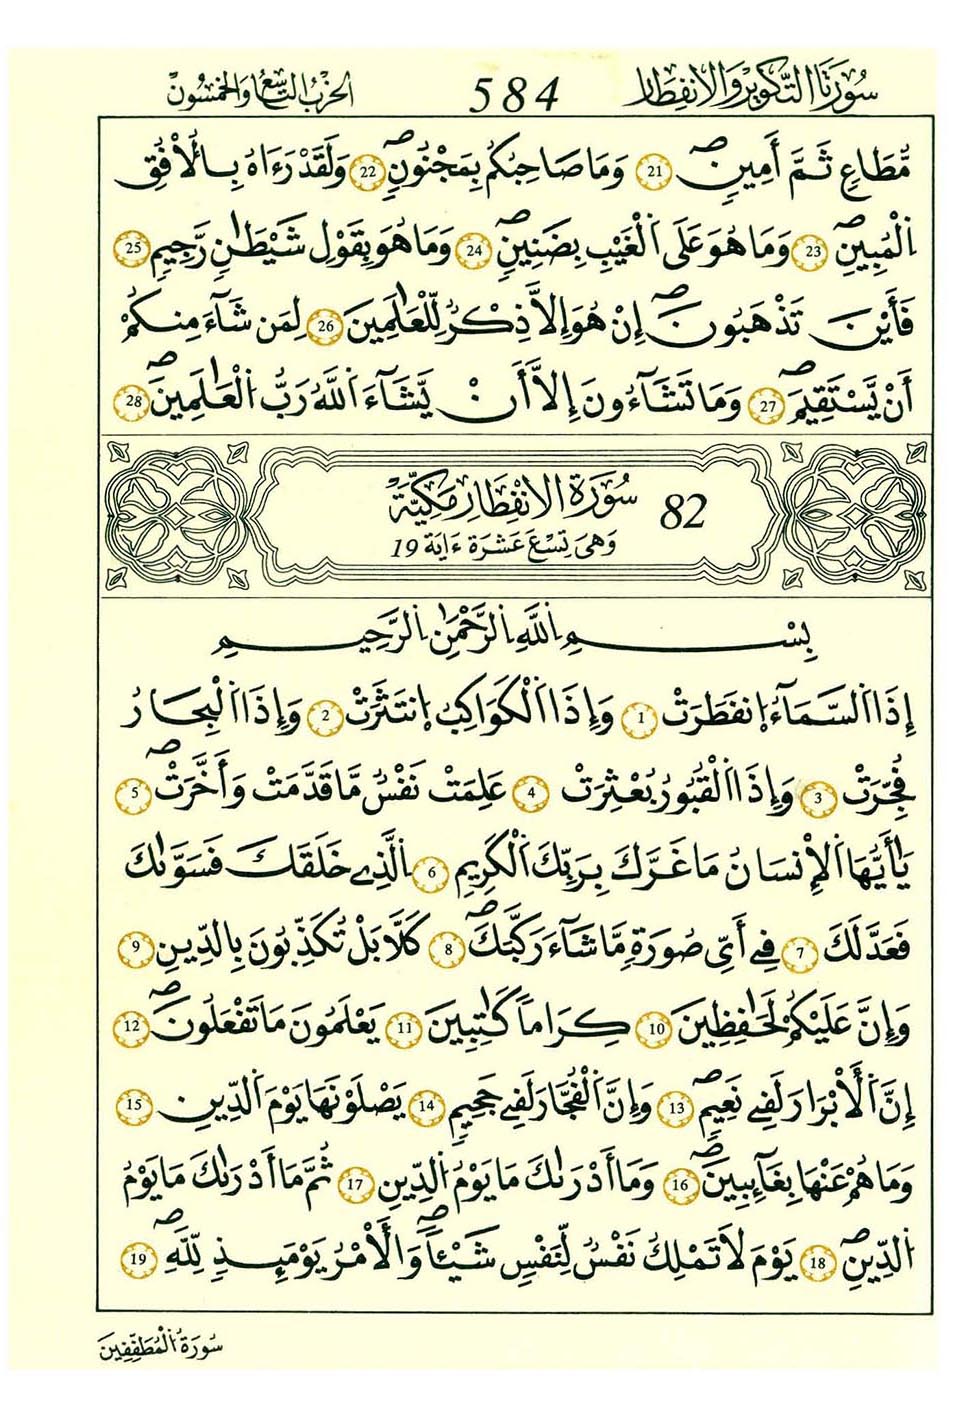 سُورَتَا التَّكْوِيرِ وَالِانفِطَارِ 584 الحِزْبُ التَّاسِعُ وَالخَمْسُونَ
مُّطَاعٍ ثَمَّ أَمِينٍۖ 21 وَمَا صَاحِبُكُم بِمَجْنُونٍۖ 22 وَلَقَدْ رَءَاهُ بِالُافُقِ
اِ۬لْمُبِينِۖ 23 وَمَا هُوَ عَلَى اَ۬لْغَيْبِ بِضَنِينٍۖ 24 وَمَا هُوَ بِقَوْلِ شَيْطَٰنٍ رَّجِيمٍ 25
فَأَيْنَ تَذْهَبُونَۖ إِنْ هُوَ إِلَّا ذِكْرٌ لِّلْعَٰلَمِينَ 26 لِمَن شَآءَ مِنكُمُ
أَنْ يَّسْتَقِيمَۖ 27 وَمَا تَشَآءُونَ إِلَّا أَنْ يَّشَآءَ اَ۬للَّهُ رَبُّ اُ۬لْعَٰلَمِينَۖ 28
82 سُورَةُ الِانْفِطَارِ مَكِّيَّةٌ
وَهِيَ تِسْعَ عَشْرَةَ ءَايَةً 19
بِسْمِ اِ۬للَّهِ اِ۬لرَّحْمَٰنِ اِ۬لرَّحِيمِ
إِذَا اَ۬لسَّمَآءُ اُ۪نفَطَرَتْ 1 وَإِذَا اَ۬لْكَوَاكِبُ اُ۪نتَثَرَتْ 2 وَإِذَا اَ۬لْبِحَارُ
فُجِّرَتْ 3 وَإِذَا اَ۬لْقُبُورُ بُعْثِرَتْ 4 عَلِمَتْ نَفْسٌ مَّا قَدَّمَتْ وَأَخَّرَتْۖ 5
يَٰأَيُّهَا اَ۬لْإِنسَانُ مَا غَرَّكَ بِرَبِّكَ اَ۬لْكَرِيمِ 6 اِ۬لَّذِے خَلَقَكَ فَسَوَّىٰكَ
فَعَدَّلَكَ 7 فِے أَيِّ صُورَةٍ مَّا شَآءَ رَكَّبَكَۖ 8 كَلَّا بَلْ تُكَذِّبُونَ بِالدِّينِ 9
وَإِنَّ عَلَيْكُمْ لَحَٰفِظِينَ 10 كِرَاماً كَٰتِبِينَ 11 يَعْلَمُونَ مَا تَفْعَلُونَۖ 12
إِنَّ اَ۬لْأَبْرَارَ لَفِے نَعِيمٍۖ 13 وَإِنَّ اَ۬لْفُجَّارَ لَفِے جَحِيمٍ 14 يَصْلَوْنَهَا يَوْمَ اَ۬لدِّينِ 15
وَمَا هُمْ عَنْهَا بِغَآئِبِينَۖ 16 وَمَا أَدْرَىٰكَ مَا يَوْمُ اُ۬لدِّينِ 17 ثُمَّ مَا أَدْرَىٰكَ مَا يَوْمُ
اُ۬لدِّينِۖ 18 يَوْمَ لَا تَمْلِكُ نَفْسٌ لِّنَفْسٍ شَيْـٔاًۖ وَالْأَمْرُ يَوْمَئِذٍ لِّلَّهِۖ 19
سُورَةُ اُ۬لْمُطَفِّفِينَ